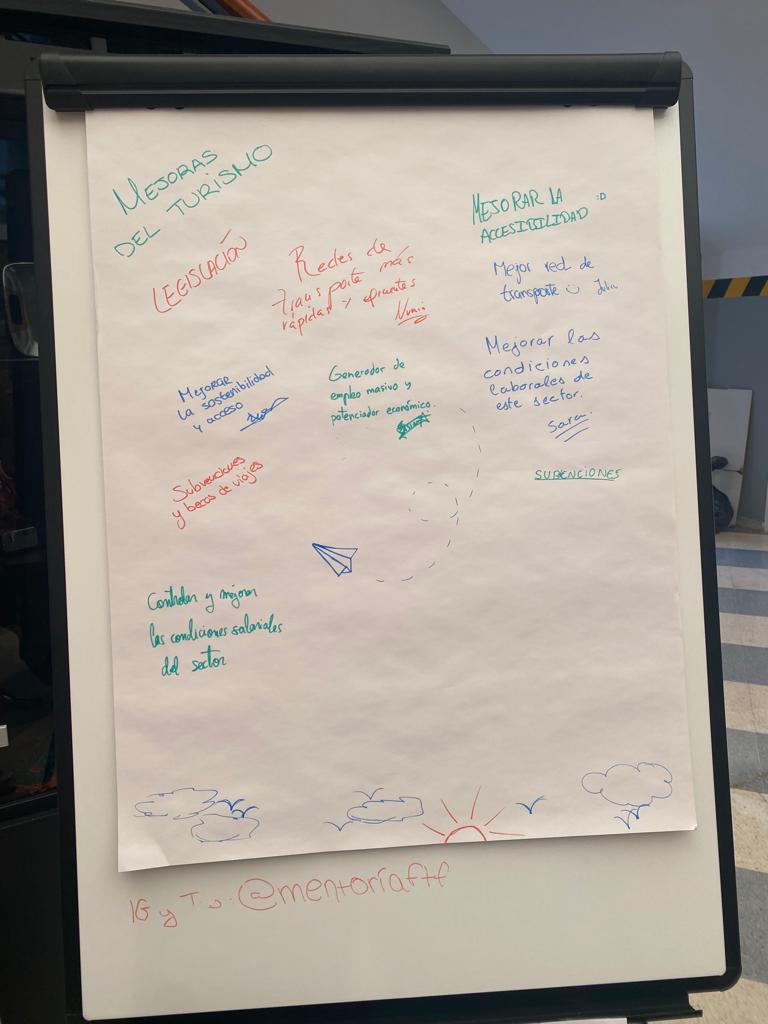 MEJORAS
DEL TURISMO
LEGISLACIÓN
Redes de
transporte más
rápidas y eficientes
MEJORAR LA :D
ACCESIBILIDAD
Mejor red de
transporte
Mejorar
la sostenibilidad
y acceso
Generador de
empleo masivo y
potenciador económico.
Mejorar las
condiciones
laborales de
este sector.
Sara.
Subvenciones
y becas de viajes
SUBENCIONES
Controlar y mejorar
las condiciones salariales
del sector
IG y @mentoríaftf